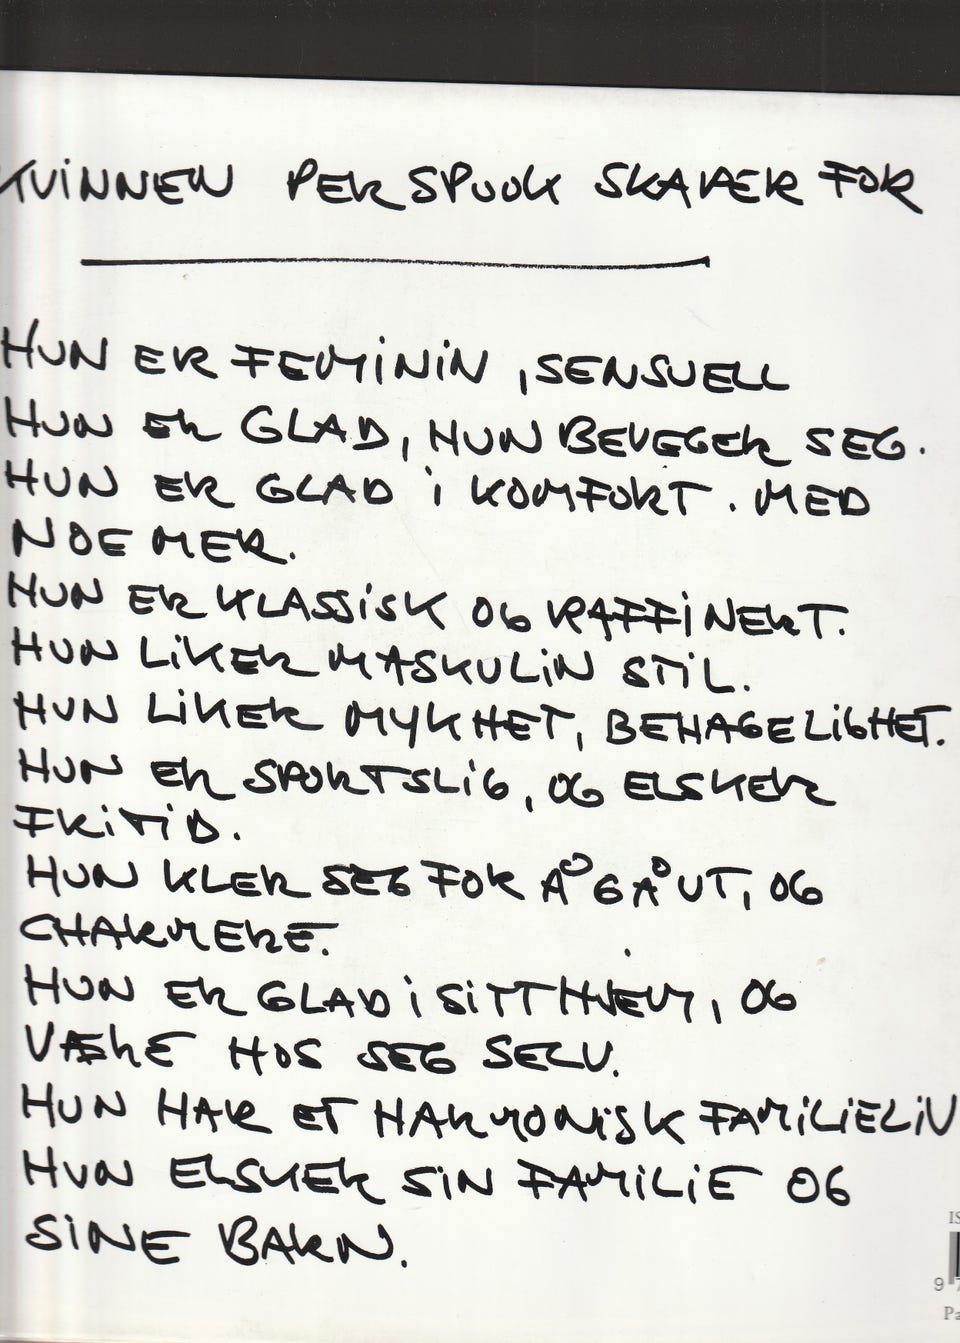 KVINNEN PER SPOOK SKAPER FOR
HUN ER FEMININ, SENSUELL
HUN ER GLAD, HUN BEVEGER SEG.
HUN ER GLAD i KOMFORT. MED
NOE MER.
HUN ER KLASSiSK OG RAFFiNERT.
HUN LiKER MASKULiN STiL.
HUN LiKER MYKHET, BEHAGELiGHET.
HUN ER SPORTSLiG, OG ELSKER
FRiTiD.
HUN KLER SEG FOR Å GÅ UT, OG
CHARMERE.
HUN ER GLAD i SiTT HJEM, OG
VÆRE HOS SEG SELV.
HUN HAR ET HARMONiSK FAMiLiELiV
HUN ELSKER SiN FAMiLiE OG
SiNE BARN.
IS
9 7
Pa